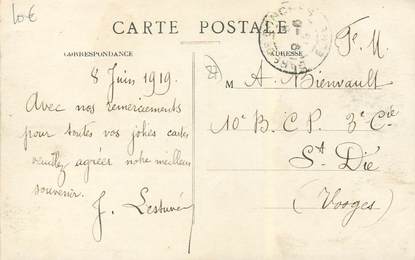 10€
CARTE POSTALE
CORRESPONDANCE
ADRESSE
F. M.
8 Juin 1919.
Avec nos remerciements
pour toutes vos jolies cartes
veuillez agréer notre meilleur
souvenir.
J.
M A. Bienvault
10e B. C. P. 3e Cie
St Dié
(Vosges)